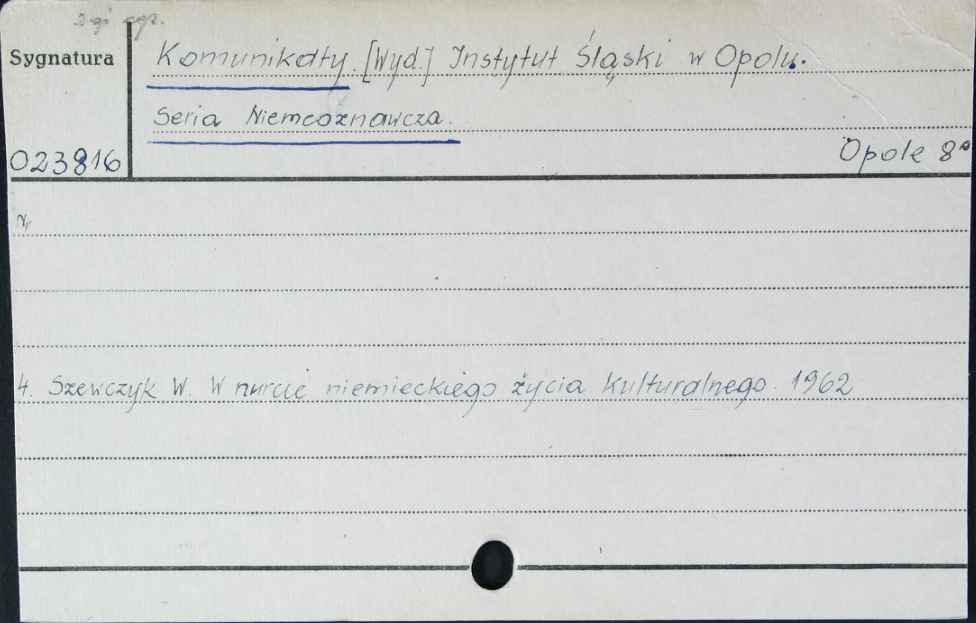 2-gi egz.
Sygnatura
Komunikaty. [Wyd.] Instytut Śląski w Opolu.
Seria Niemcoznawcza.
023816
Opole 8°
Nr
4. Szewczyk W. W nurcie niemieckiego życia kulturalnego. 1962